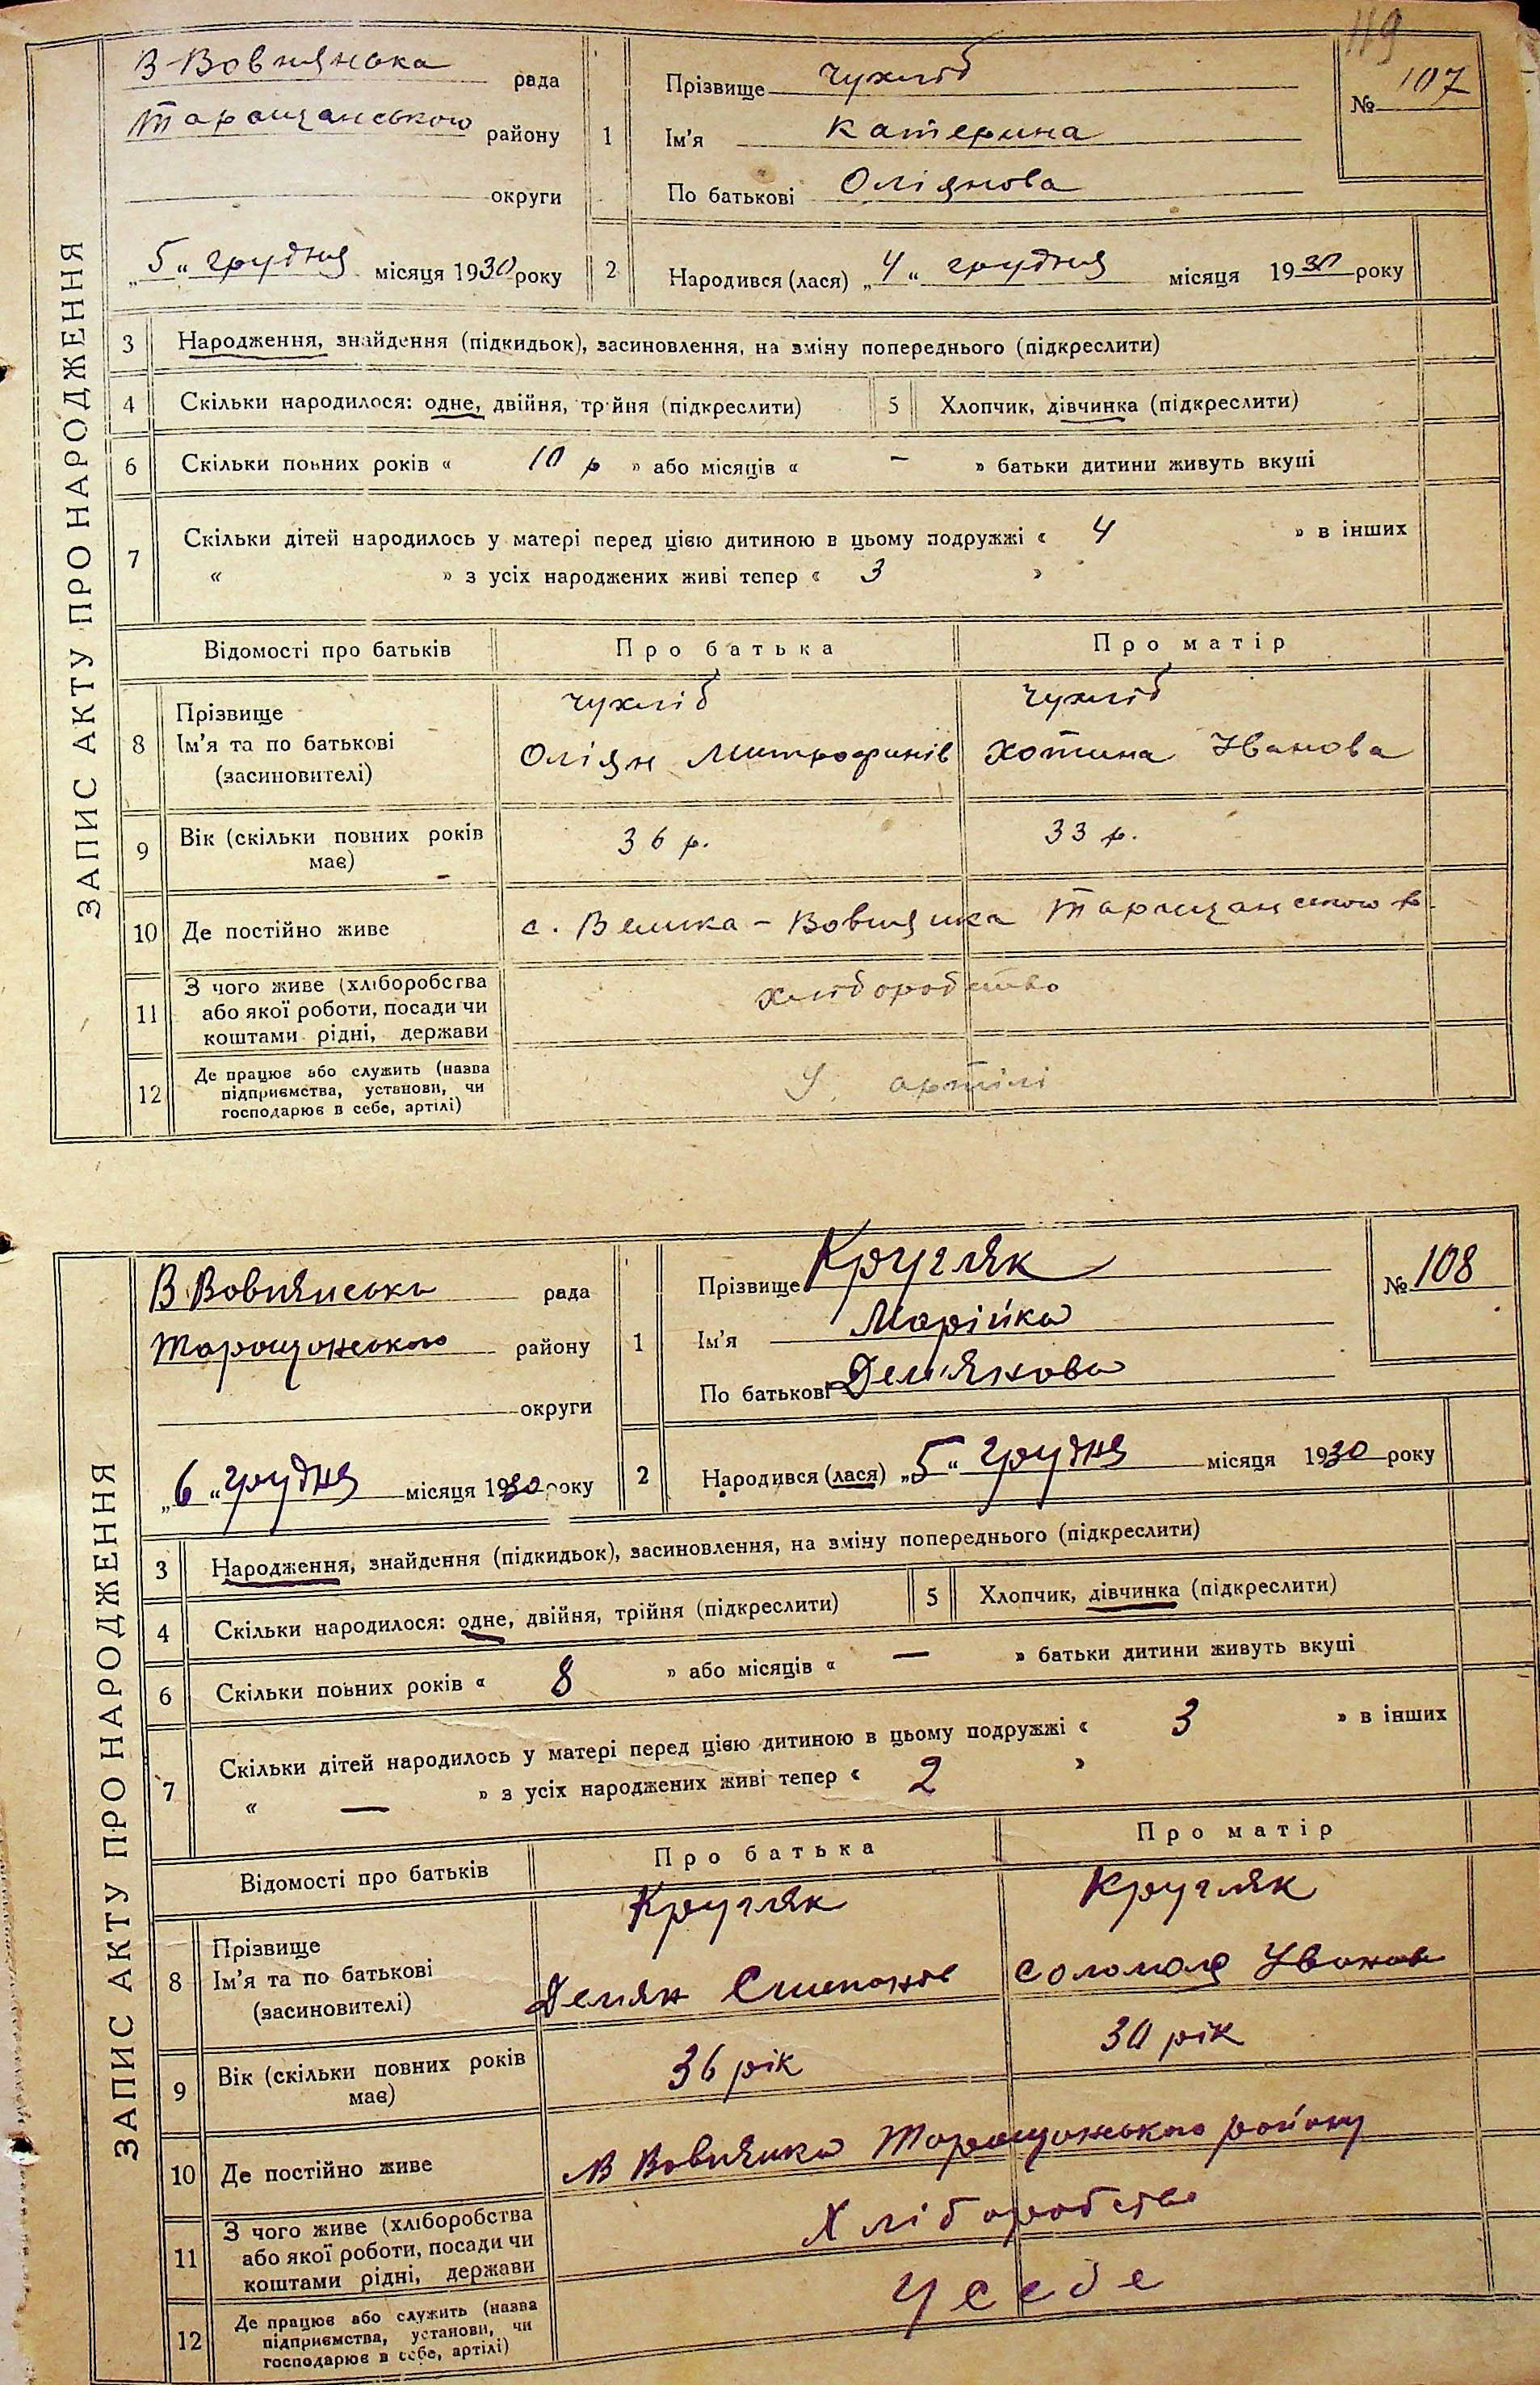 119
В-Вовнянська рада
Таращанського району
округи
„5“ грудня місяця 1930 року
1
Прізвище Чухліб
Ім'я Катерина
По батькові Оліянова
№ 107
2
Народився (лася) „4“ грудня місяця 1930 року
ЗАПИС АКТУ ПРО НАРОДЖЕННЯ
3 Народження, знайдення (підкидьок), засиновлення, на зміну попереднього (підкреслити)
4 Скільки народилося: одне, двійня, трійня (підкреслити) 5 Хлопчик, дівчинка (підкреслити)
6 Скільки повних років « 10 р » або місяців « – » батьки дитини живуть вкупі
7 Скільки дітей народилось у матері перед цією дитиною в цьому подружжі « 4 » в інших
« » з усіх народжених живі тепер « 3 »
Відомості про батьків Про батька Про матір
8 Прізвище
Ім'я та по батькові
(засиновителі)
Чухліб
Оліян Митрофанів
Чухліб
Хотина Іванова
9 Вік (скільки повних років
має)
36 р. 33 р.
10 Де постійно живе с. Велика-Вовнянка Таращанського р.
11 З чого живе (хліборобства
або якої роботи, посади чи
коштами рідні, держави
хліборобство
12 Де працює або служить (назва
підприємства, установи, чи
господарює в себе, артілі)
У артілі
В Вовнянська рада
Таращанського району
округи
„6“ грудня місяця 1930 року
1
Прізвище Кругляк
Ім'я Марійка
По батькові Дем'янова
№ 108
2
Народився (лася) „5“ грудня місяця 1930 року
ЗАПИС АКТУ ПРО НАРОДЖЕННЯ
3 Народження, знайдення (підкидьок), засиновлення, на зміну попереднього (підкреслити)
4 Скільки народилося: одне, двійня, трійня (підкреслити) 5 Хлопчик, дівчинка (підкреслити)
6 Скільки повних років « 8 » або місяців « – » батьки дитини живуть вкупі
7 Скільки дітей народилось у матері перед цією дитиною в цьому подружжі « 3 » в інших
« – » з усіх народжених живі тепер « 2 »
Відомості про батьків Про батька Про матір
8 Прізвище
Ім'я та по батькові
(засиновителі)
Кругляк
Демян Степанов
Кругляк
Соломея Іванов
9 Вік (скільки повних років
має)
36 рік 30 рік
10 Де постійно живе В Вовнянка Таращанського району
11 З чого живе (хліборобства
або якої роботи, посади чи
коштами рідні, держави
Хліборобство
12 Де працює або служить (назва
підприємства, установи, чи
господарює в себе, артілі)
У себе